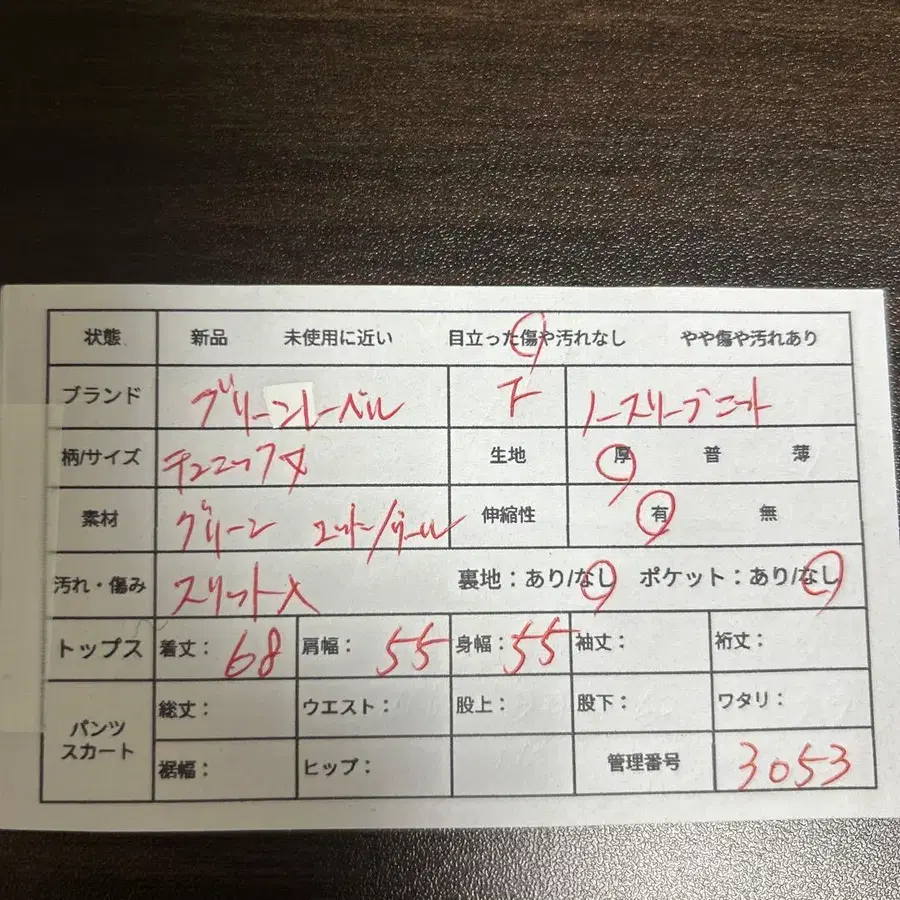 状態 新品 未使用に近い 目立った傷や汚れなし やや傷や汚れあり
ブランド グリーンレーベル F ノースリーブニット
柄/サイズ チュニック 生地 厚 普 薄
素材 グリーン コットン/ウール 伸縮性 有 無
汚れ・傷み スリット 裏地:あり/なし ポケット:あり/なし
トップス 着丈: 68 肩幅: 55 身幅: 55 袖丈: 裄丈:
パンツ スカート 総丈: ウエスト: 股上: 股下: ワタリ:
裾幅: ヒップ: 管理番号 3053